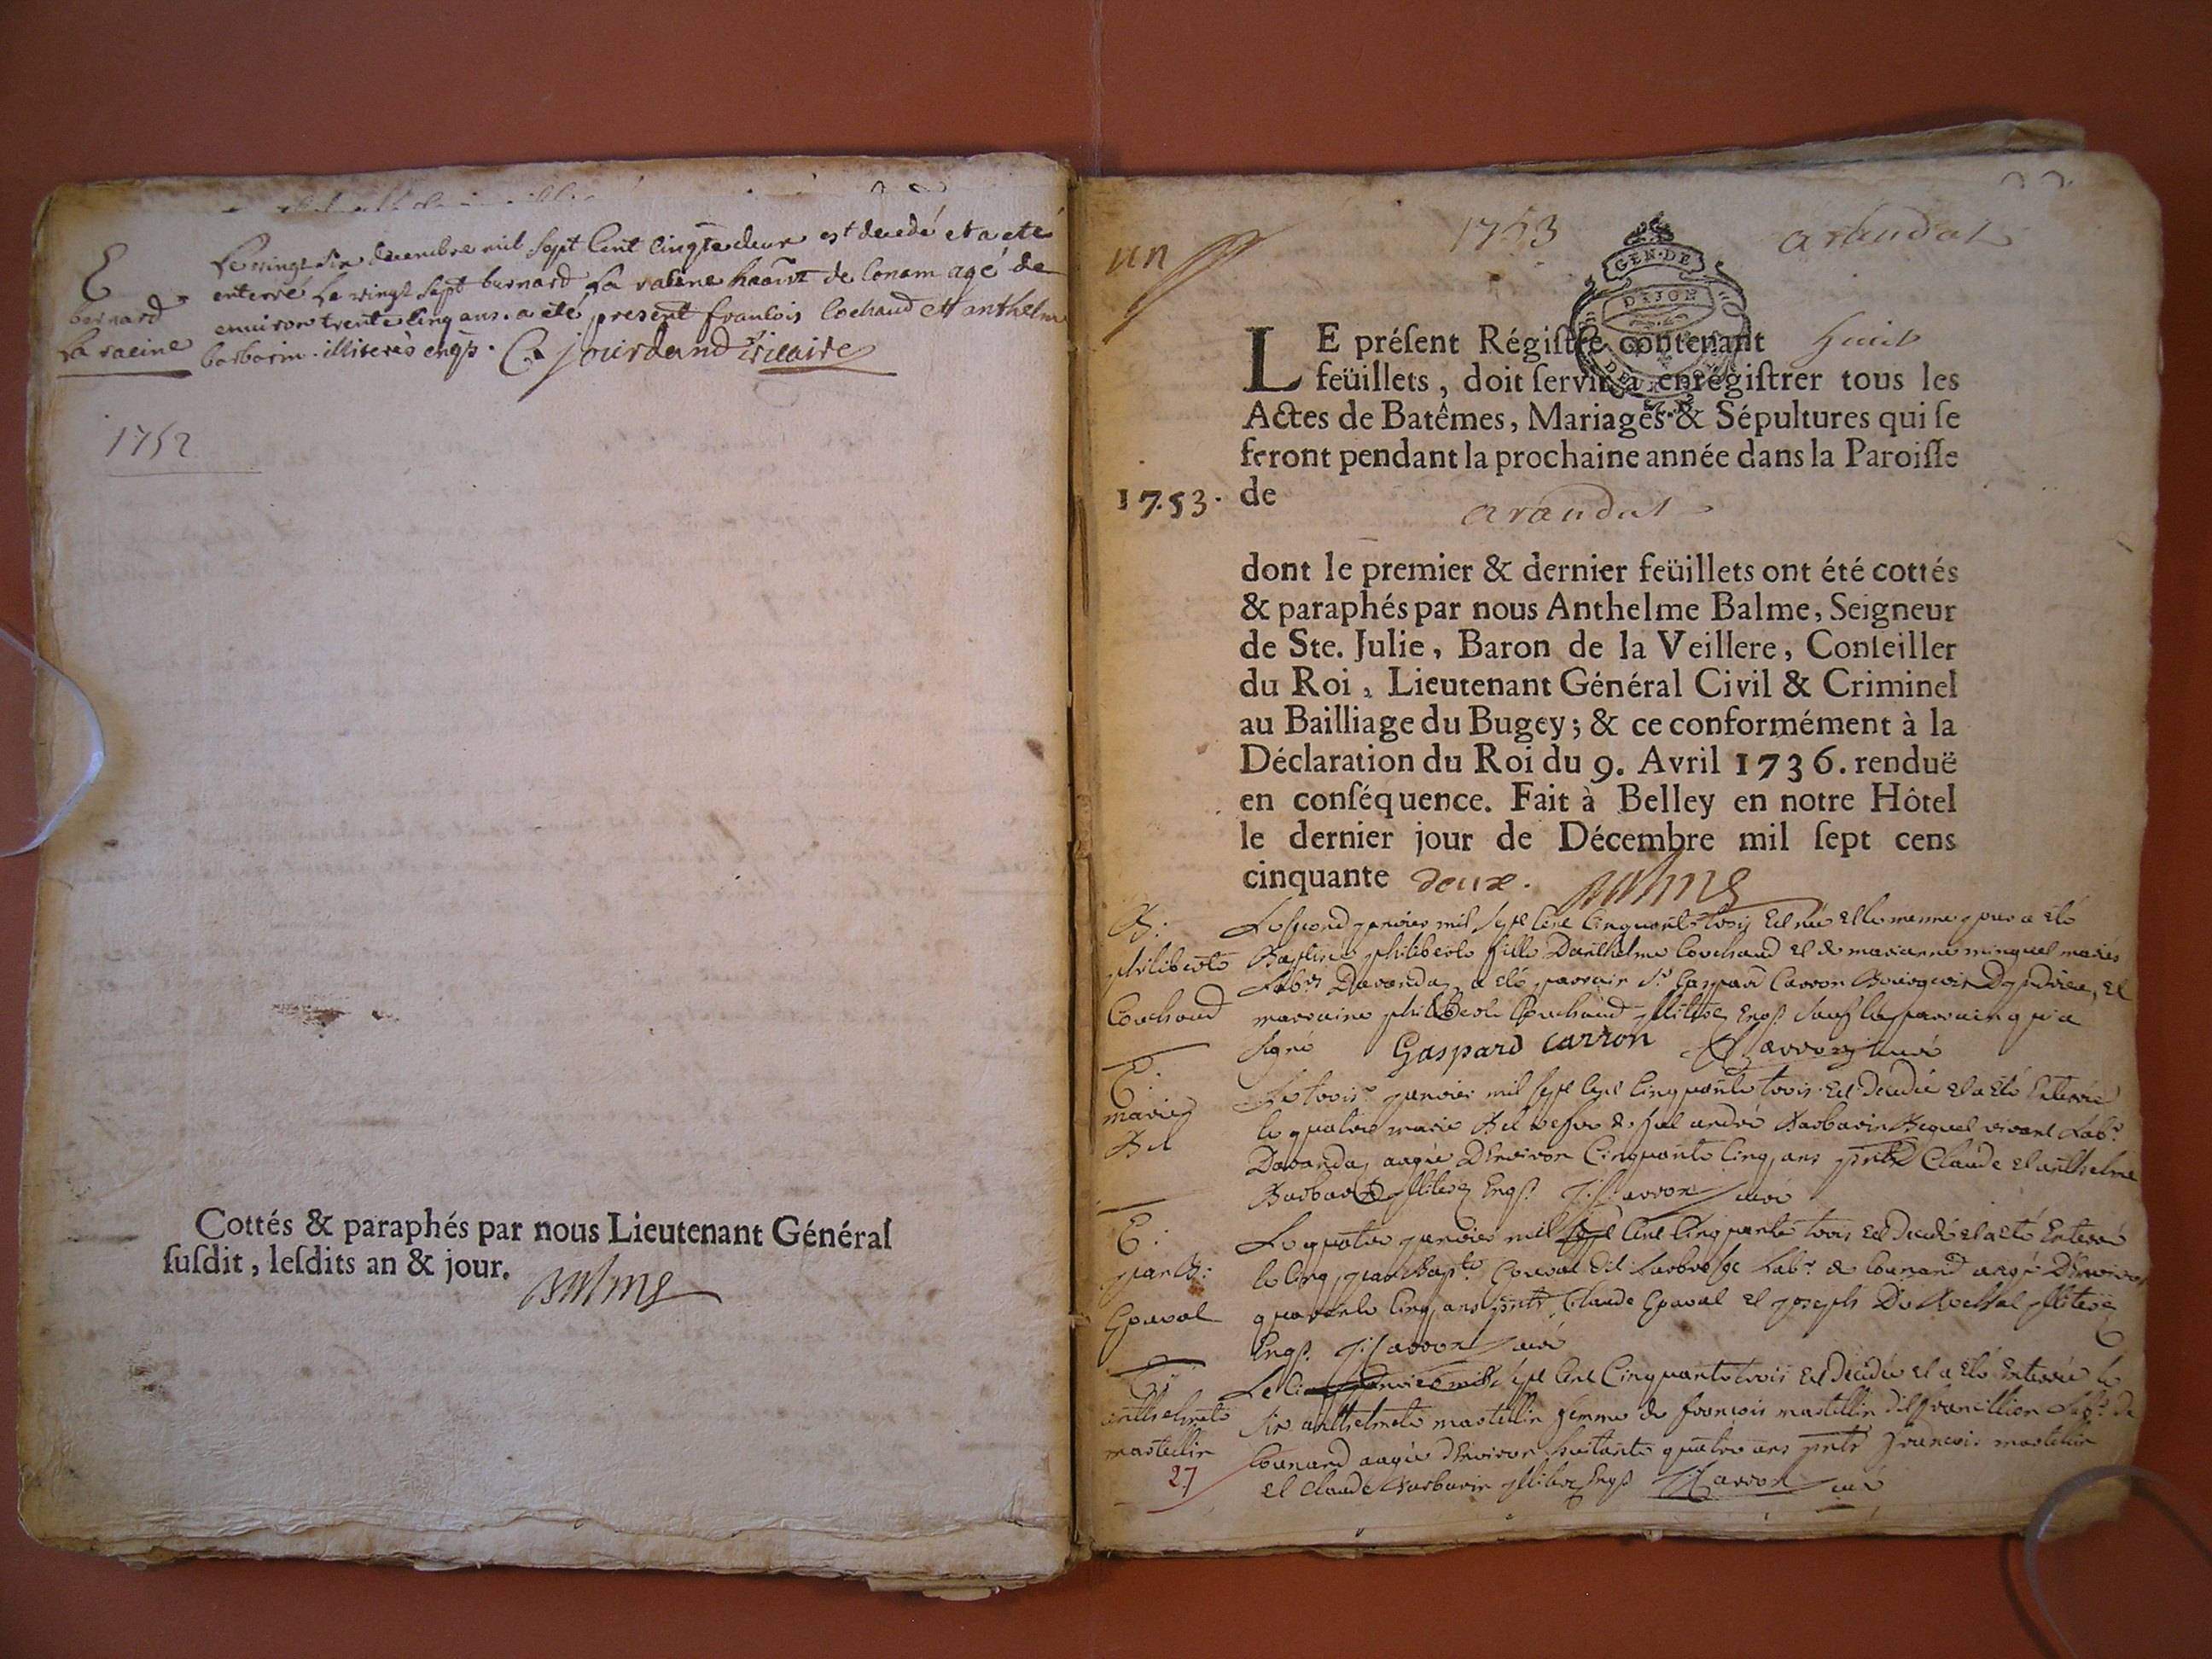 E
bernard
La racine
Le vingt six decembre mil sept cent cinqte deux est decedé et a eté
enterré Le vingt sept bernard La racine haant de Conam agé de
environ trente cinq ans. a eté present francois Cochaud et anthelme
barbarin. illiterés enqs. C. jourdand vicaire
1752
Cottés & paraphés par nous Lieutenant Général
ſuſdit, leſdits an & jour.
Balme
un
1753
arandas
GEN. DE
DIJON
LE préſent Régiſtre contenant huit
feüillets, doit ſervir à enrégiſtrer tous les
Actes de Batêmes, Mariages & Sépultures qui ſe
feront pendant la prochaine année dans la Paroiſſe
1753. de arandas
dont le premier & dernier feüillets ont été cottés
& paraphés par nous Anthelme Balme, Seigneur
de Ste. Julie, Baron de la Veillere, Conſeiller
du Roi, Lieutenant Général Civil & Criminel
au Bailliage du Bugey; & ce conformément à la
Déclaration du Roi du 9. Avril 1736. renduë
en conſéquence. Fait à Belley en notre Hôtel
le dernier jour de Décembre mil ſept cens
cinquante deux. Balme
B:
philiberte
Cochaud
Le second janvier mil sept cent cinquante trois est née et le meme jour a eté
Baptisée philiberte fille Danthelme Cochaud et de marianne minguet mariés
Labrs Darandas, a eté parrain Sr Gaspard Carron Bourgeois et
marraine philiberte Cochaud illiterés Enqs sauf le parrain qui a
signé Gaspard carron Carron curé
E:
marie
Bel
Le trois janvier mil sept cent cinquante trois Est Decedée et a eté Enterrée
le quatre marie Bel vefve de andré Barbarin vivant Labr
Darandas, aagée Denviron Cinquante cinq ans pnts Claude et anthelme
Barbarin illiterés Enqs Carron curé
E:
jean B:
Epaval
Le quatre janvier mil sept cent cinquante trois Est Decedé et a eté Enterré
le cinq jean Bapte Epaval dit Labr de Counand aagé Denviron
quarante cinq ans pnts Claude Epaval et joseph illiterés
Enqs Carron curé
E:
anthelmete
martellin
Le janvier mil sept cent Cinquante trois Est Decedée et a eté Enterrée le
six anthelmete martellin femme de francois martellin dit Labr de
Counand aagée denviron quatre ans pnts francois martellin
et Claude Barbarin illiterés Enqs Carron curé
27